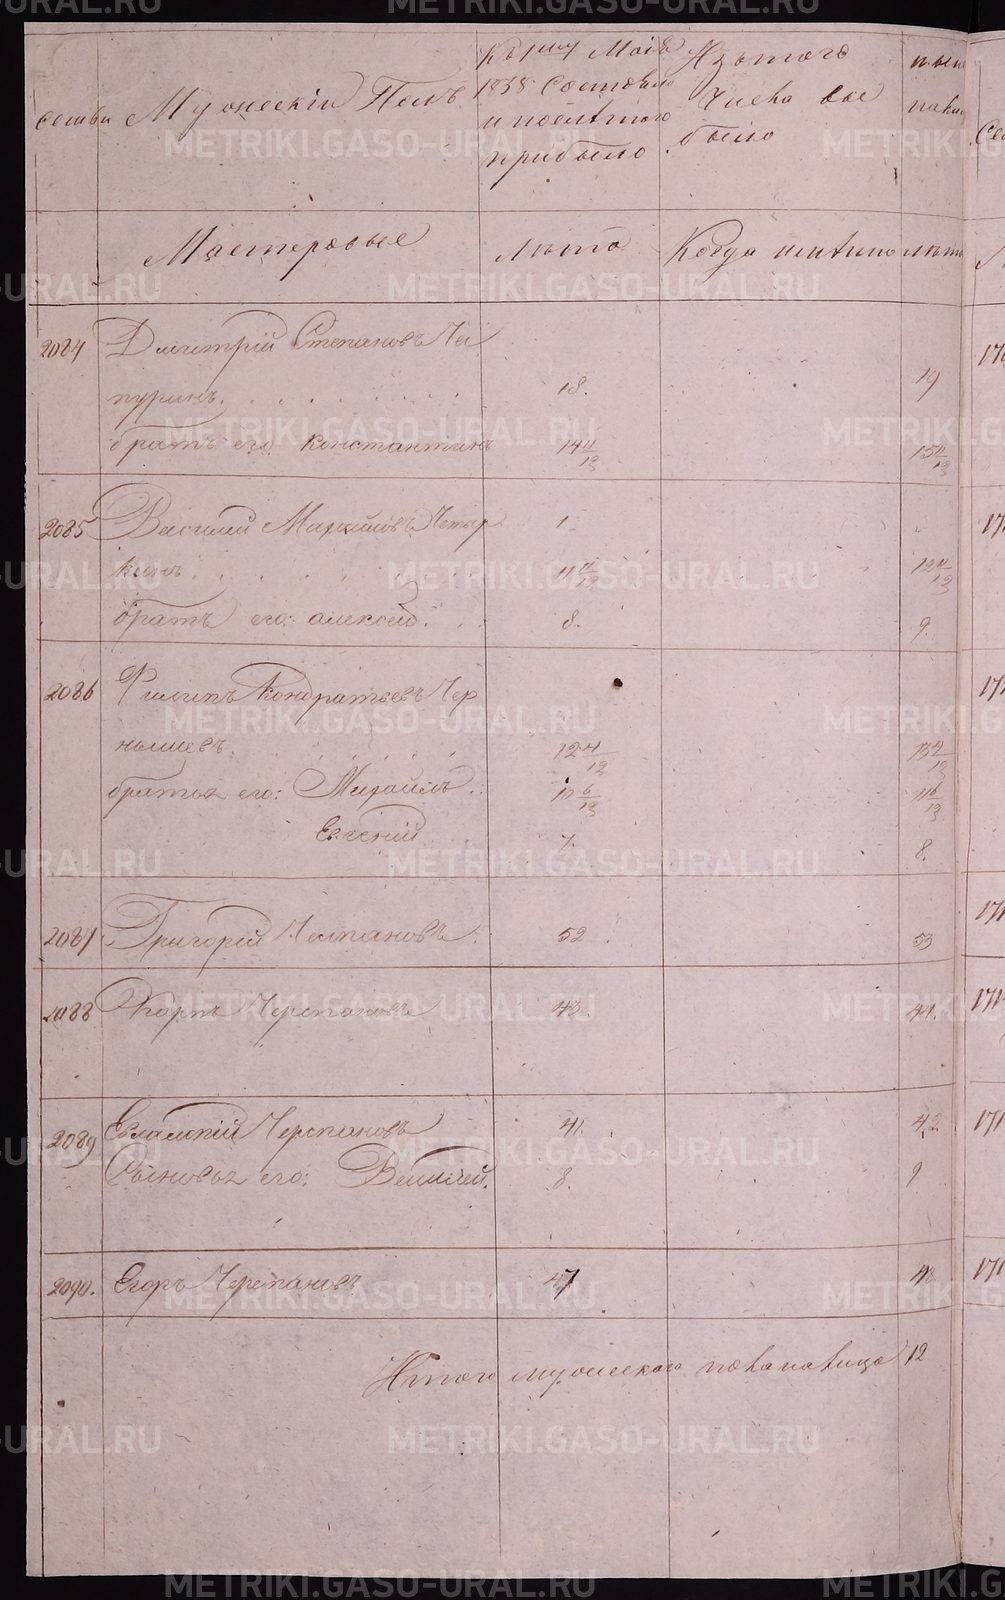 семьи
Мужескiи Полъ
Къ 1му Маiя
1838 Состояло
и после того
прибыло
Изъ того
Числа вы
было
ныне
налиц
Мастеровые
лета
Когда именно
лета
2084 Дмитрiй Степановъ Че
пуринъ. 18. 19
братъ его Константинъ 14 11/12 15 11/12
2085 Василий Петыр
кинъ 11 11/12 12 11/12
братъ его: алексей. 8. 9.
2086 Филипъ Кондратьевъ Чер
нышевъ. 12 4/12 13 4/12
братья его: Михайлъ 10 6/12 11 6/12
Евгенiй 7. 8.
2087 Григорiй 52 53
2088 Карпъ Черепановъ 43. 44.
2089 Евлампiй Черепановъ 41. 42
Сыновья его: 8. 9
2090. Егоръ Черепановъ 47 48
Итого мужескаго пола налицо 12
METRIKI.GASO-URAL.RU